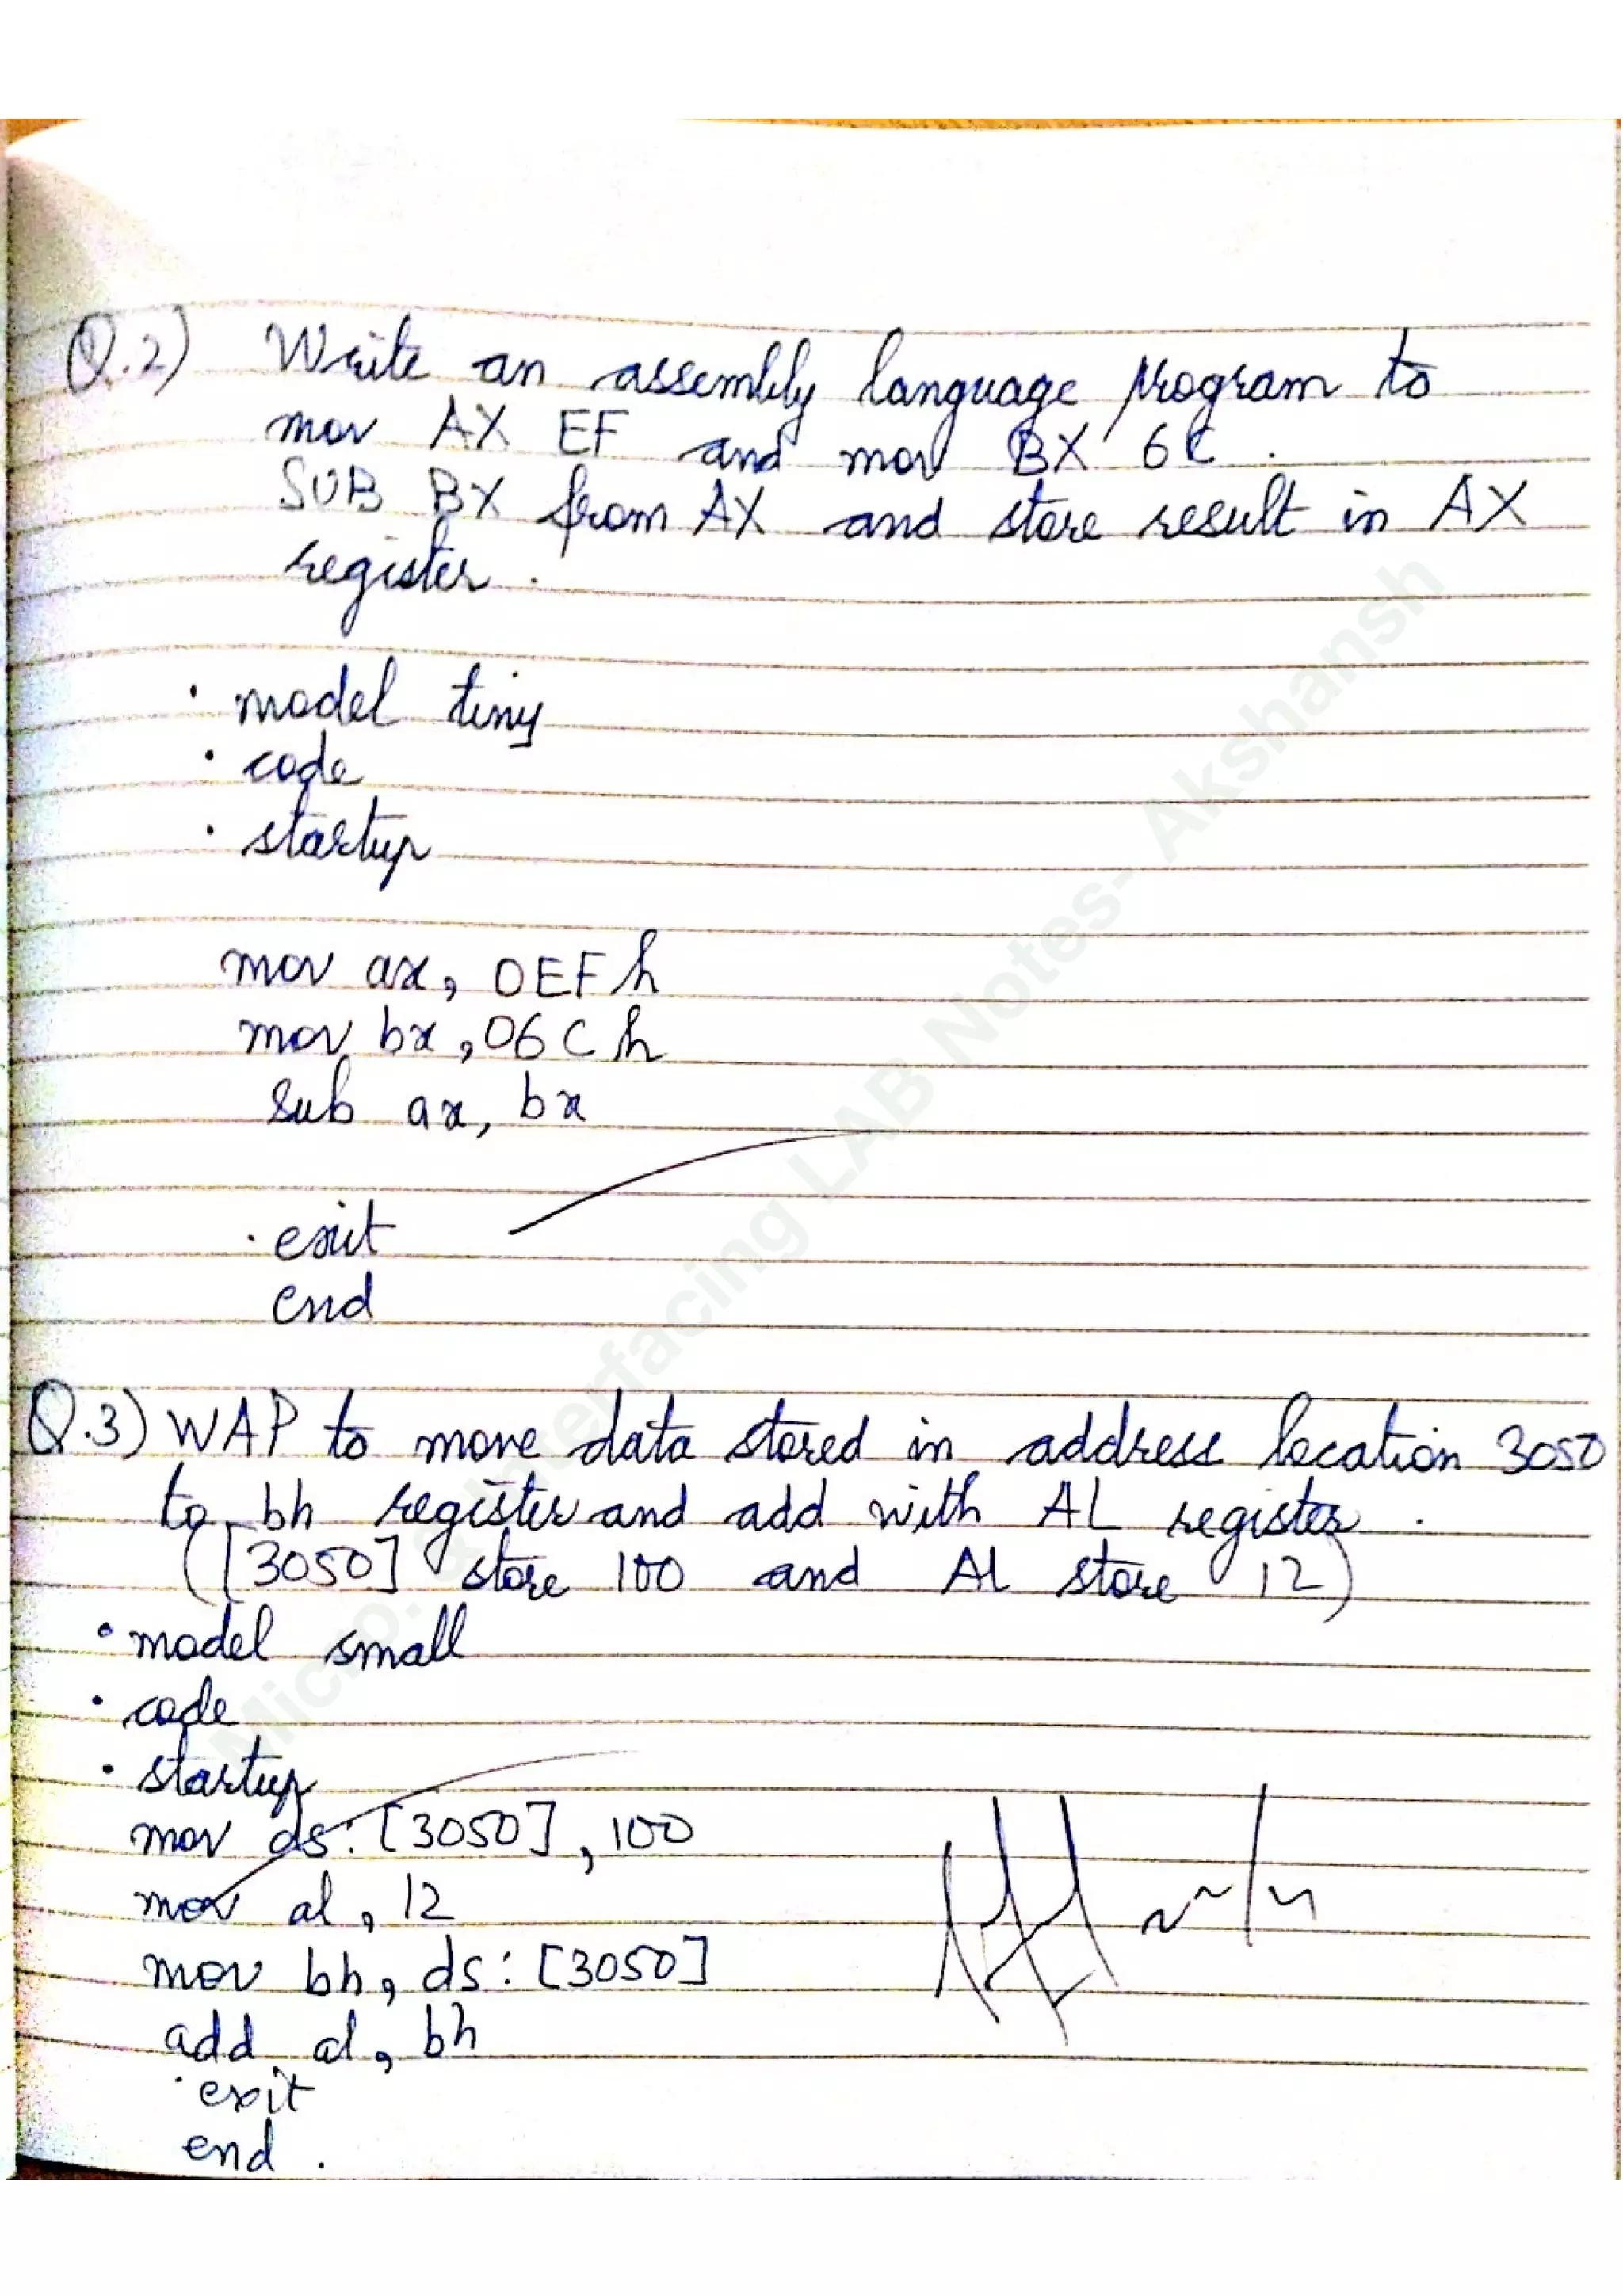 Q.2) Write an assembly language program to
mov AX EF and mov BX 6C .
SUB BX from AX and store result in AX
register .
. model tiny
. code
. startup
mov ax, 0EFh
mov bx, 06Ch
sub ax, bx
. exit
end
Q.3) WAP to move data stored in address location 3050
to bh register and add with AL register .
([3050] store 100 and AL store 12)
. model small
. code
. startup
mov ds: [3050], 100
mov al, 12
mov bh, ds: [3050]
add al, bh
. exit
end .
Micro. & Interfacing LAB Notes- Akshansh